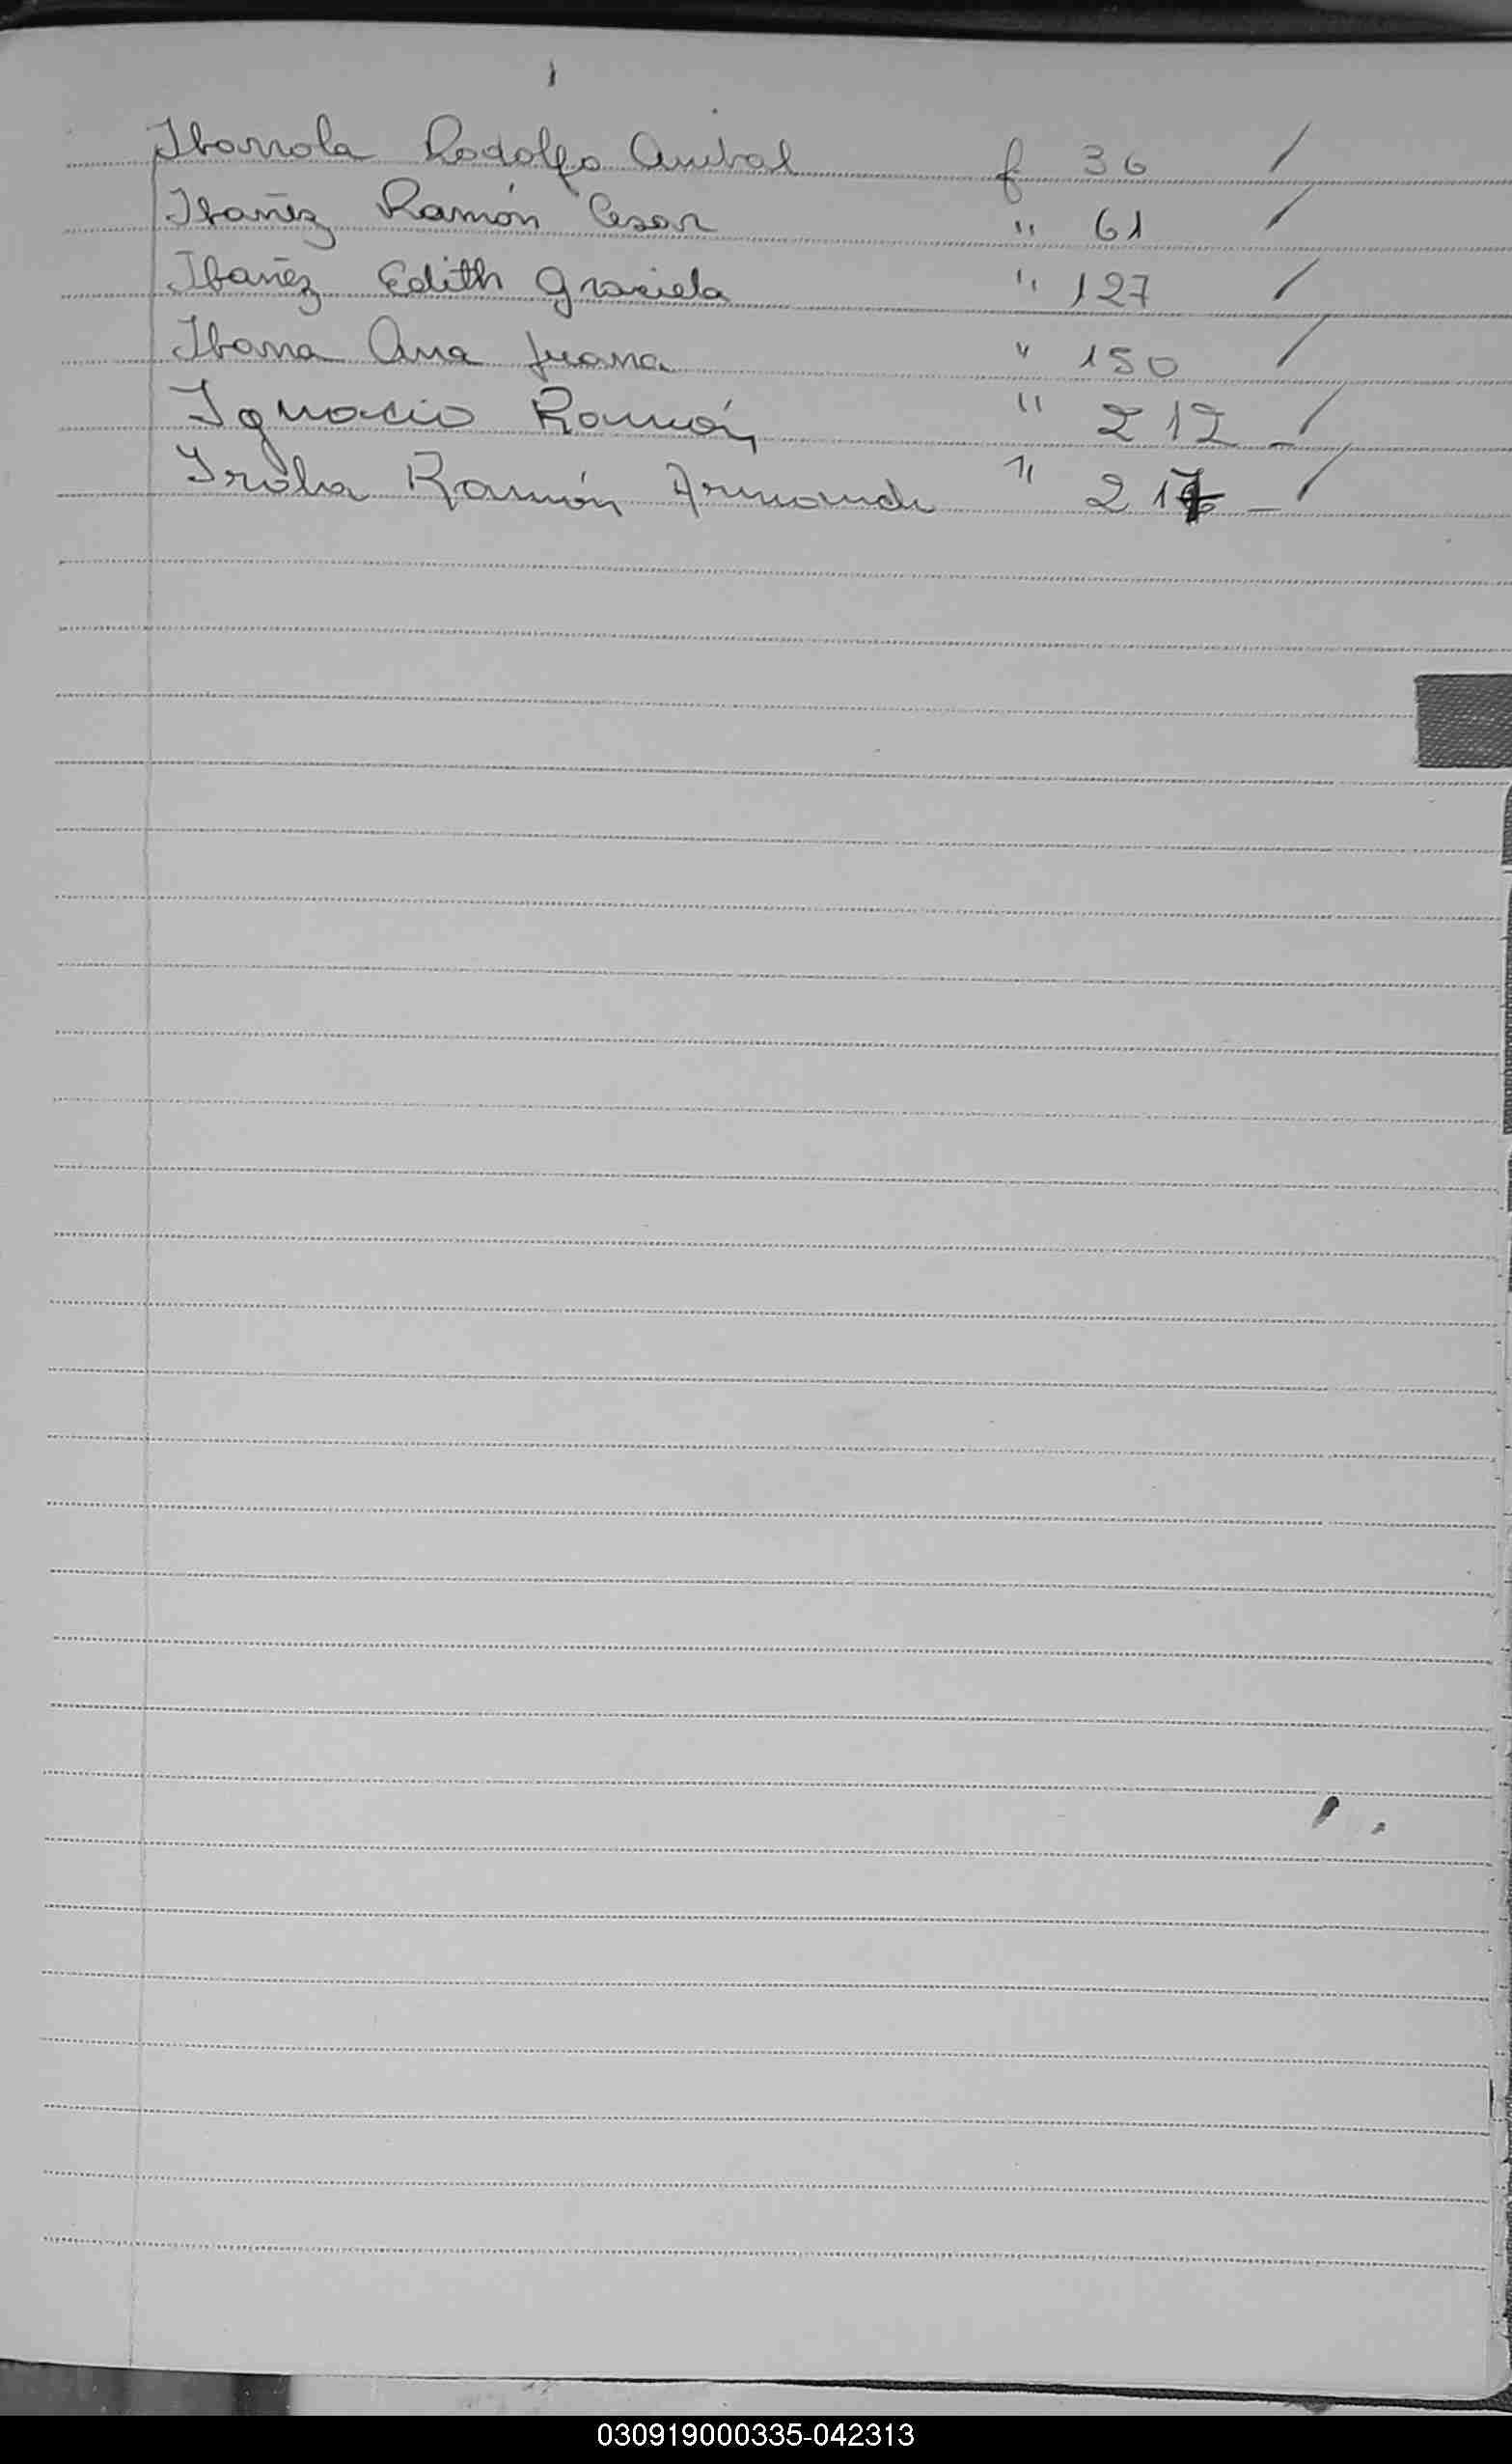 Ibarrola Rodolfo Anibal f 36 /
Ibañez Ramón Cesar " 61 /
Ibañez Edith Graciela " 127 /
Ibarra Ana Juana " 150 /
Ignacio Ramón " 212 - /
Ramón Armando " 217 - /
030919000335-042313